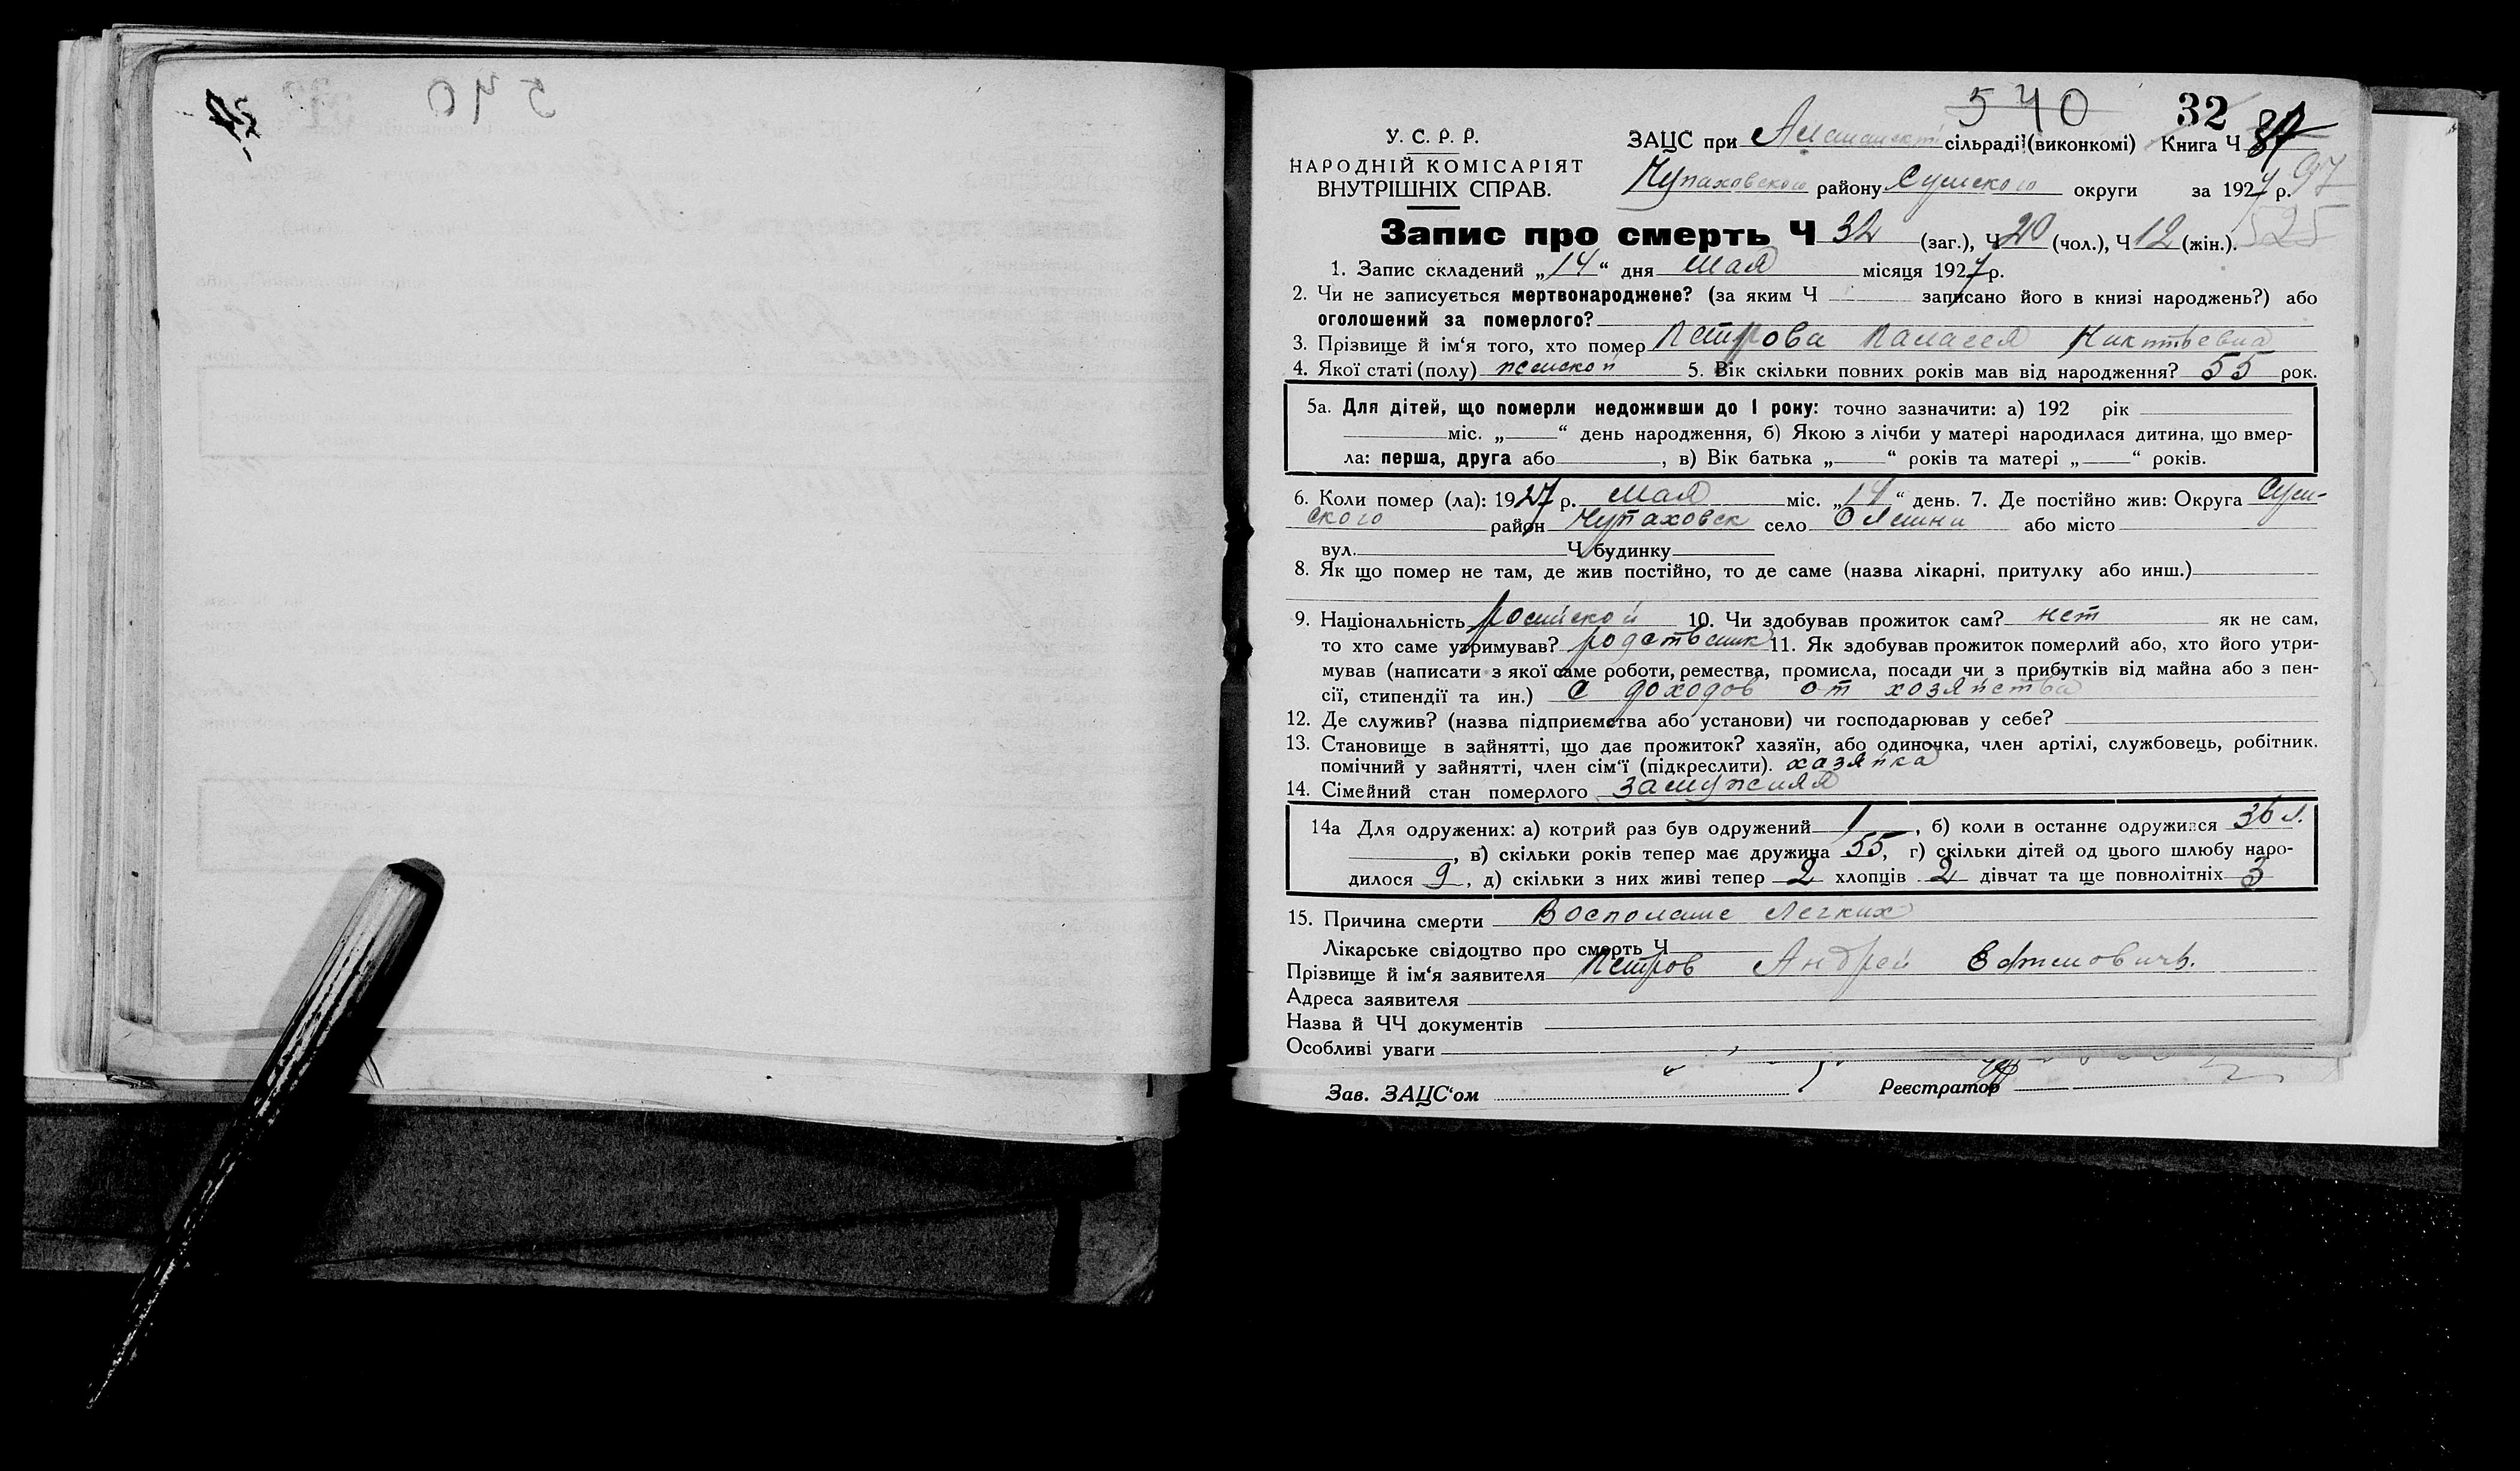 540 32
У. С. Р. Р.
НАРОДНІЙ КОМІСАРІЯТ
ВНУТРІШНІХ СПРАВ.
ЗАЦС при сільраді (виконкомі) Книга Ч
Чупаховского району Сумского округи за 1927 р. 97
525
Запис про смерть Ч 32 (заг.), Ч 20 (чол.), Ч 12 (жін.).
1. Запис складений „14“ дня мая місяця 1927 р.
2. Чи не записується мертвонароджене? (за яким Ч записано його в книзі народжень?) або
оголошений за померлого?
3. Прізвище й ім‘я того, хто помер Петрова Палагея Никитьевна
4. Якої статі (полу) женской 5. Вік скільки повних років мав від народження? 55 рок.
5а. Для дітей, що померли недоживши до 1 року: точно зазначити: а) 192 рік
міс. „ “ день народження, б) Якою з лічби у матері народилася дитина, що вмер-
ла: перша, друга або , в) Вік батька „ “ років та матері „ “ років.
6. Коли помер (ла): 1927 р. мая міс. „14“ день. 7. Де постійно жив: Округа Сум-
ского район Чупаховск село або місто
вул. Ч будинку
8. Як що помер не там, де жив постійно, то де саме (назва лікарні, притулку або инш.)
9. Національність росийской 10. Чи здобував прожиток сам? нет як не сам,
то хто саме утримував? родствених 11. Як здобував прожиток померлий або, хто його утри-
мував (написати з якої саме роботи, ремества, промисла, посади чи з прибутків від майна або з пен-
сії, стипендії та ин.) С доходов от хозяйства
12. Де служив? (назва підприємства або установи) чи господарював у себе?
13. Становище в зайнятті, що дає прожиток? хазяїн, або одиночка, член артілі, службовець, робітник,
помічний у зайнятті, член сім‘ї (підкреслити). хазяйка
14. Сімейний стан померлого замужняя
14а Для одружених: а) котрий раз був одружений 1, б) коли в останнє одружився 36 л.
, в) скільки років тепер має дружина 55, г) скільки дітей од цього шлюбу наро-
дилося 9, д) скільки з них живі тепер 2 хлопців 2 дівчат та ще повнолітніх 3
15. Причина смерти Восполение легких
Лікарське свідоцтво про смерть Ч
Прізвище й ім‘я заявителя Петров Андрей
Адреса заявителя
Назва й ЧЧ документів
Особливі уваги
Зав. ЗАЦС‘ом Реєстратор